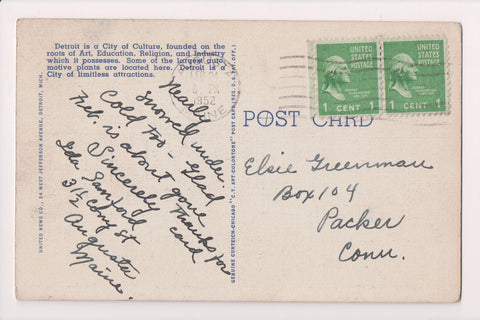 Detroit is a City of Culture, founded on the
roots of Art, Education, Religion, and Industry
which it possesses. Some of the largest auto-
motive plants are located here. Detroit is a
City of limitless attractions.
Nearly
snowed under.
Cold too - Glad
Feb. is about gone
Thanks for
card
Sincerely
Ida Sanford
3½ Cony st
Augusta
Maine.
UNITED NEWS CO., 24 WEST JEFFERSON AVENUE, DETROIT, MICH.
GENUINE CURTEICH-CHICAGO "C.T. ART-COLORTONE" POST CARD (REG. U.S. PAT. OFF.)
1952
UNITED
STATES
POSTAGE
1 CENT 1
UNITED
STATES
POSTAGE
1 CENT 1
POST CARD
Elsie Greenman
Box 104
Packer
Conn.